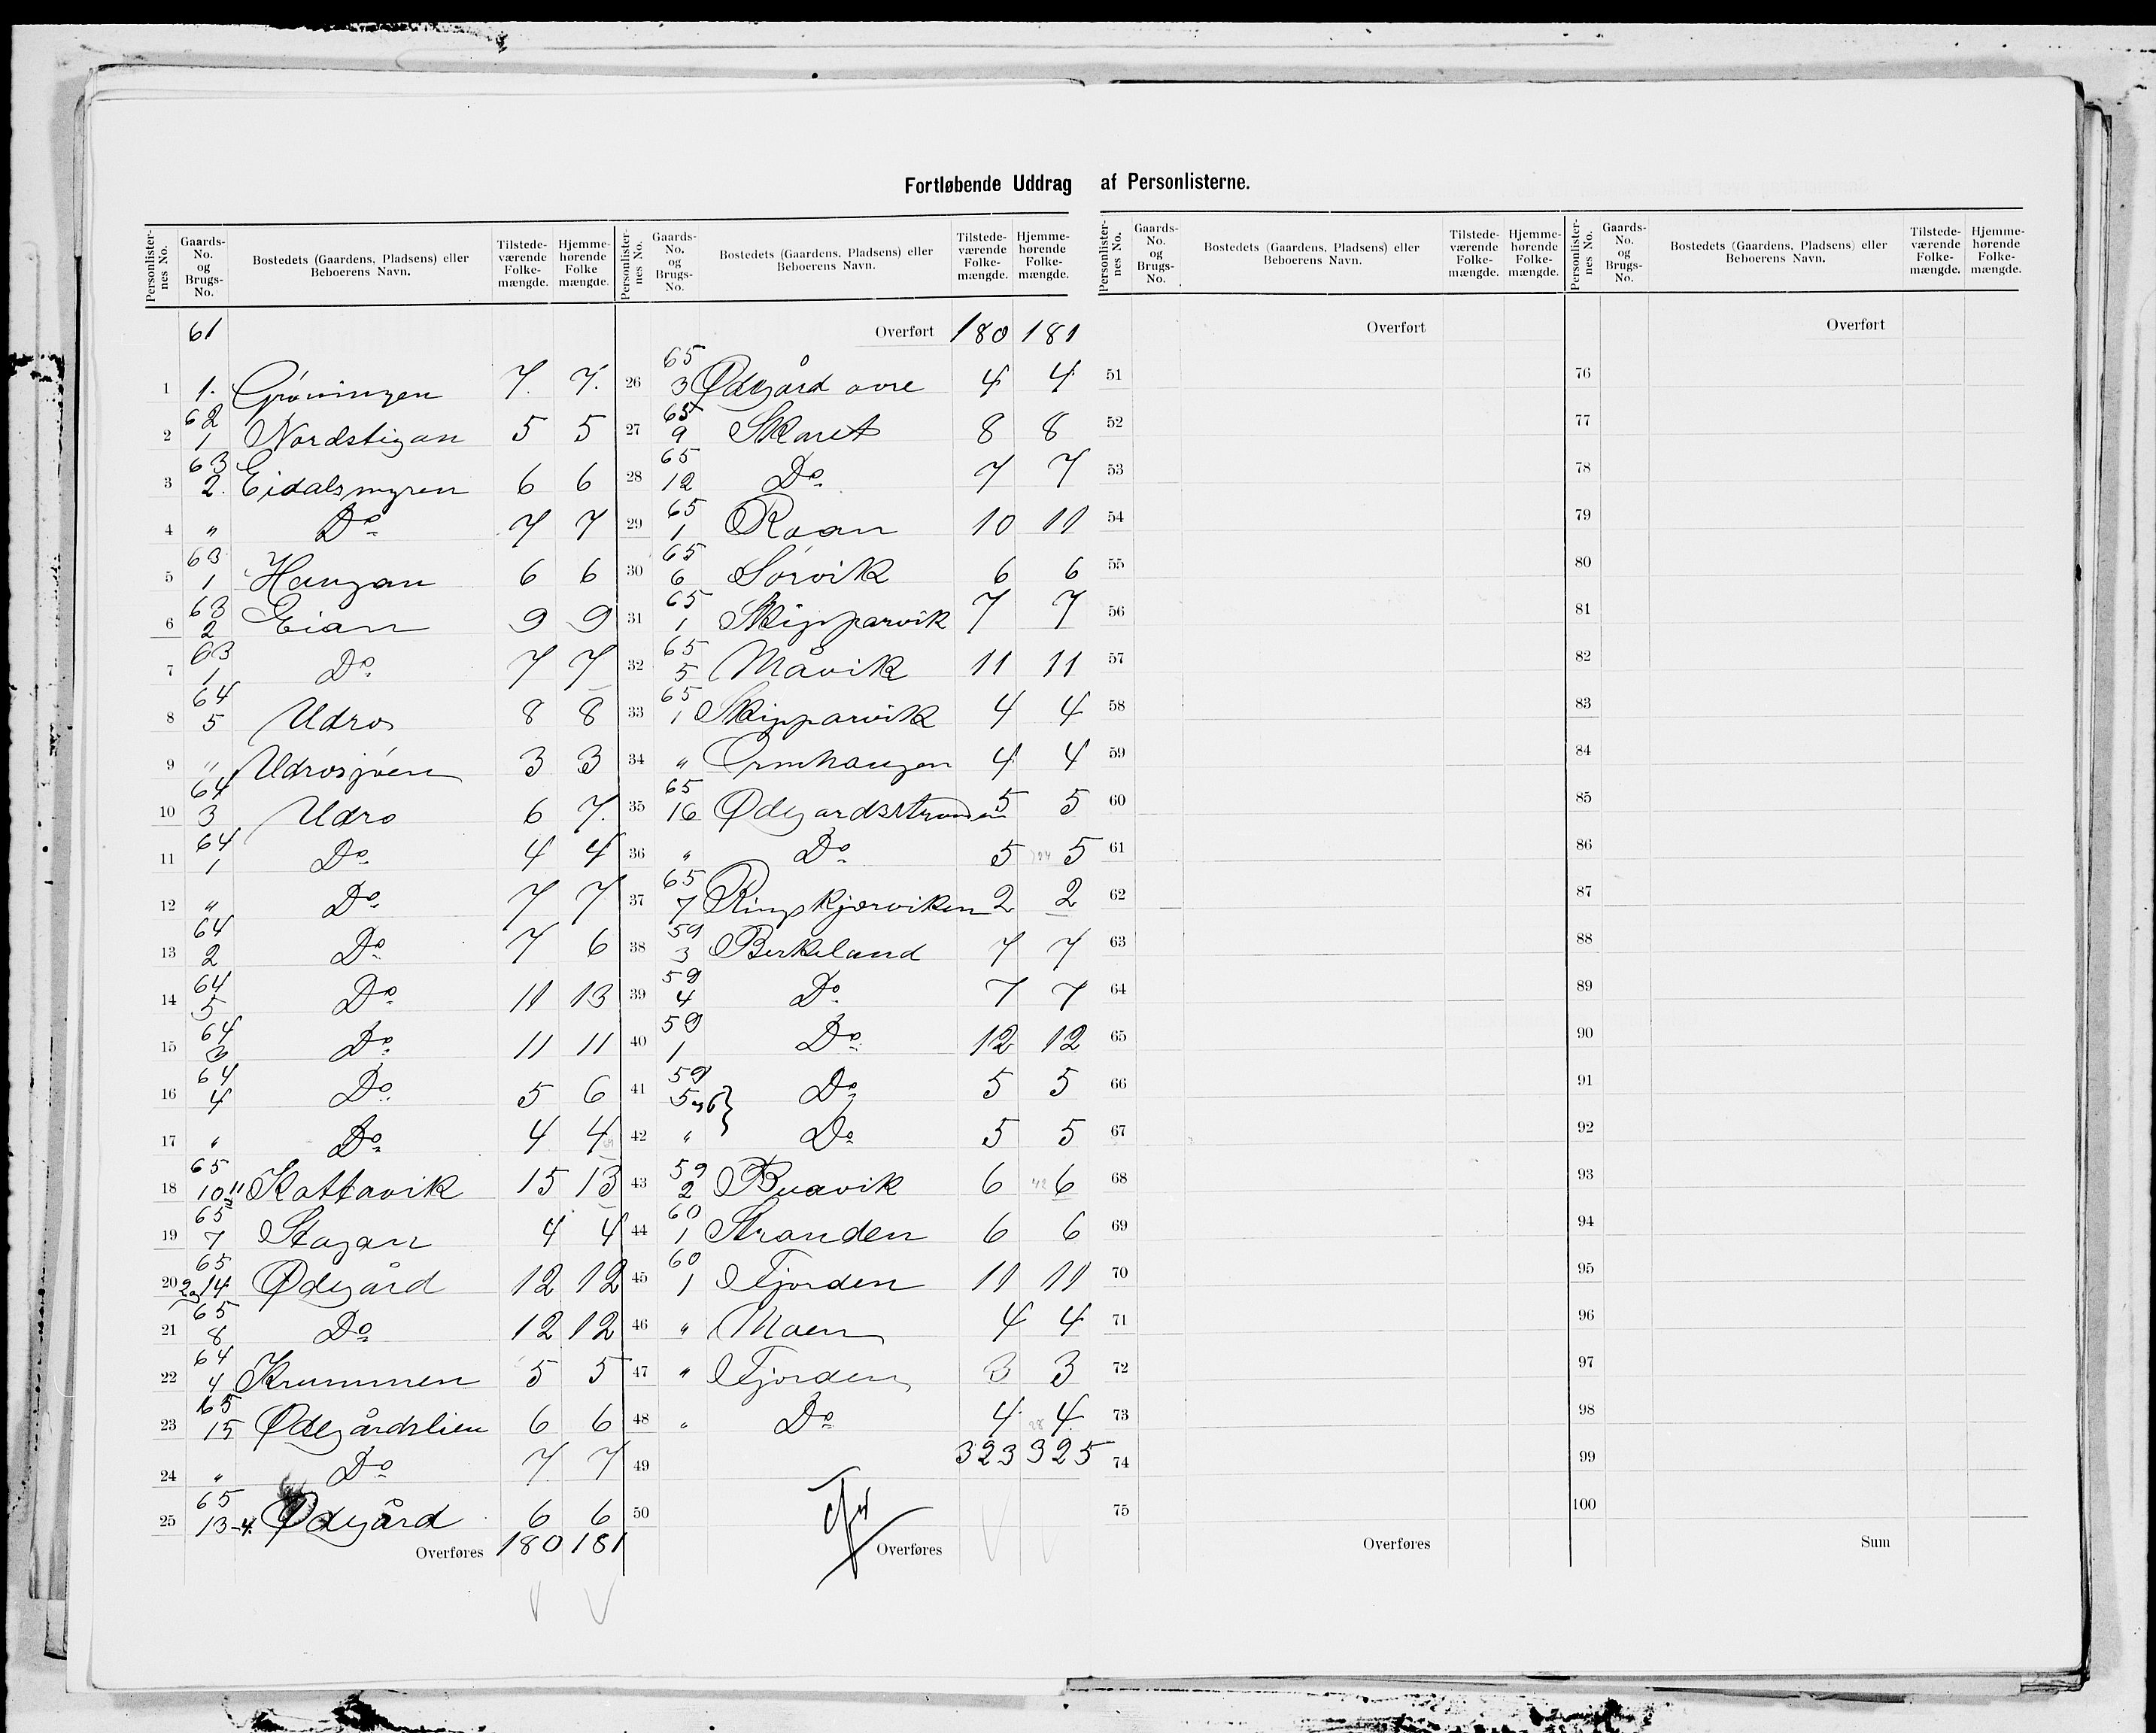 Fortløbende Uddrag af Personlisterne.
Personlister-nes No. | Gaards-No. og Brugs-No. | Bostedets (Gaardens, Pladsens) eller Beboerens Navn. | Tilstede-værende Folke-mængde. | Hjemme-hørende Folke mængde.
61
1 | 1. | Grøningen | 7. | 7.
2 | 62 1 | Nordstigan | 5 | 5
3 | 63 2. | Eidalsmyren | 6 | 6
4 | " | Do | 7 | 7
5 | 63 1 | Haugan | 6 | 6
6 | 63 2 | Eian | 9 | 9
7 | 63 1 | Do | 7 | 7
8 | 64 5 | Udro | 8 | 8
9 | " | Udrosjøen | 3 | 3
10 | 64 3 | Udro | 6 | 7.
11 | 64 1 | Do | 4 | 4
12 | " | Do | 7 | 7
13 | 64 2 | Do | 7 | 6
14 | 64 5 | Do | 11 | 13
15 | 64 3 | Do | 11 | 11
16 | 64 4 | Do | 5 | 6
17 | " | Do | 4 | 4
18 | 65 10 11 | Kattavik | 15 | 13
19 | 65 7 | Stagan | 4 | 4
20 | 65 2 og 14 | Ødegård | 12 | 12
21 | 65 8 | Do | 12 | 12
22 | 64 4 | Krummen | 5 | 5
23 | 65 15 | Ødegårdslien | 6 | 6
24 | " | Do | 7 | 7
25 | 65 13-4. | Ødegård | 6 | 6
Overføres | 180 | 181
Personlister-nes No. | Gaards-No. og Brugs-No. | Bostedets (Gaardens, Pladsens) eller Beboerens Navn. | Tilstede-værende Folke-mængde. | Hjemme-hørende Folke-mængde.
Overført | 180 | 181
26 | 65 3 | Ødegård øvre | 4 | 4
27 | 65 9 | Skaret | 8 | 8
28 | 65 12 | Do | 7 | 7
29 | 65 1 | Roan | 10 | 11
30 | 65 6 | Sørvik | 6 | 6
31 | 65 1 | Skipparvik | 7 | 7
32 | 65 5 | Måvik | 11 | 11
33 | 65 1 | Skipparvik | 4 | 4
34 | " | Ormhaugen | 4 | 4
35 | 65 16 | Ødegardsstranden | 5 | 5
36 | " | Do | 5 | 5
37 | 65 7 | Ringkjærviken | 2 | 2
38 | 59 3 | Berkeland | 7 | 7
39 | 59 4 | Do | 7 | 7
40 | 59 1 | Do | 12 | 12
41 | 59 5 og 6 } | Do | 5 | 5
42 | " | Do | 5 | 5
43 | 59 2 | Buavik | 6 | 6
44 | 60 1 | Stranden | 6 | 6
45 | 60 1 | Fjorden | 11 | 11
46 | " | Moen | 4 | 4
47 | " | Fjorden | 3 | 3
48 | " | Do | 4 | 4
49 | 323 | 325
50
Overføres
Personlister-nes No. | Gaards-No. og Brugs-No. | Bostedets (Gaardens, Pladsens) eller Beboerens Navn. | Tilstede-værende Folke-mængde. | Hjemme-hørende Folke-mængde.
Overført
51
52
53
54
55
56
57
58
59
60
61
62
63
64
65
66
67
68
69
70
71
72
73
74
75
Overføres
Personlister-nes No. | Gaards-No. og Brugs-No. | Bostedets (Gaardens, Pladsens) eller Beboerens Navn. | Tilstede-værende Folke-mængde. | Hjemme-hørende Folke-mængde.
Overført
76
77
78
79
80
81
82
83
84
85
86
87
88
89
90
91
92
93
94
95
96
97
98
99
100
Sum